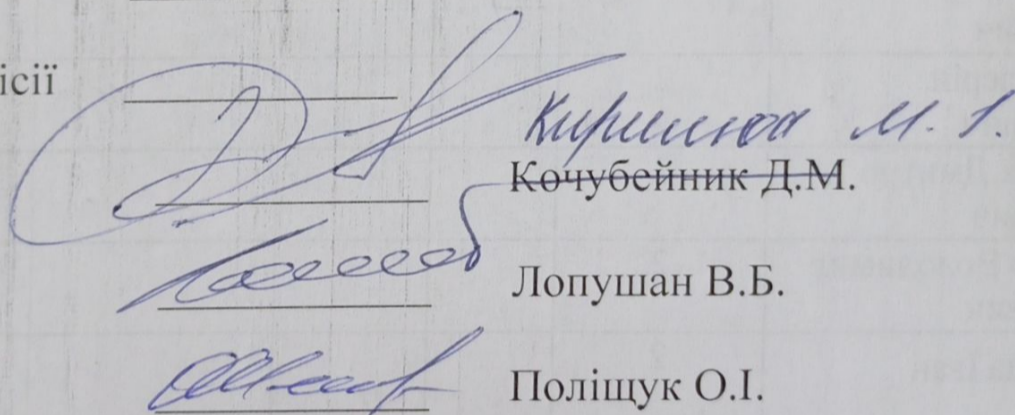 ісії
М. І.
Кочубейник Д.М.
Лопушан В.Б.
Поліщук О.І.